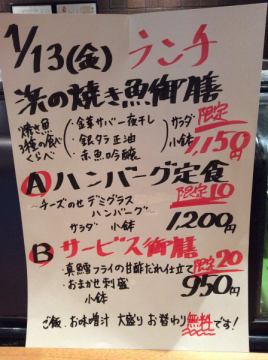 1/13(金) ランチ
浜の焼き魚御膳
焼き魚
3種の食べ
くらべ
・金華サバ一夜干し
・銀タラ正油
・赤魚吟醸
サラダ
小鉢
限定
1,150円
A ハンバーグ定食
限定10
〜チーズのせデミグラス
ハンバーグ〜
サラダ 小鉢
1,200円
B サービス御膳
限定20
・真鱈フライの甘酢だれ仕立て
・おまかせ刺盛
小鉢
950円
ご飯、お味噌汁 大盛り お替わり無料です!